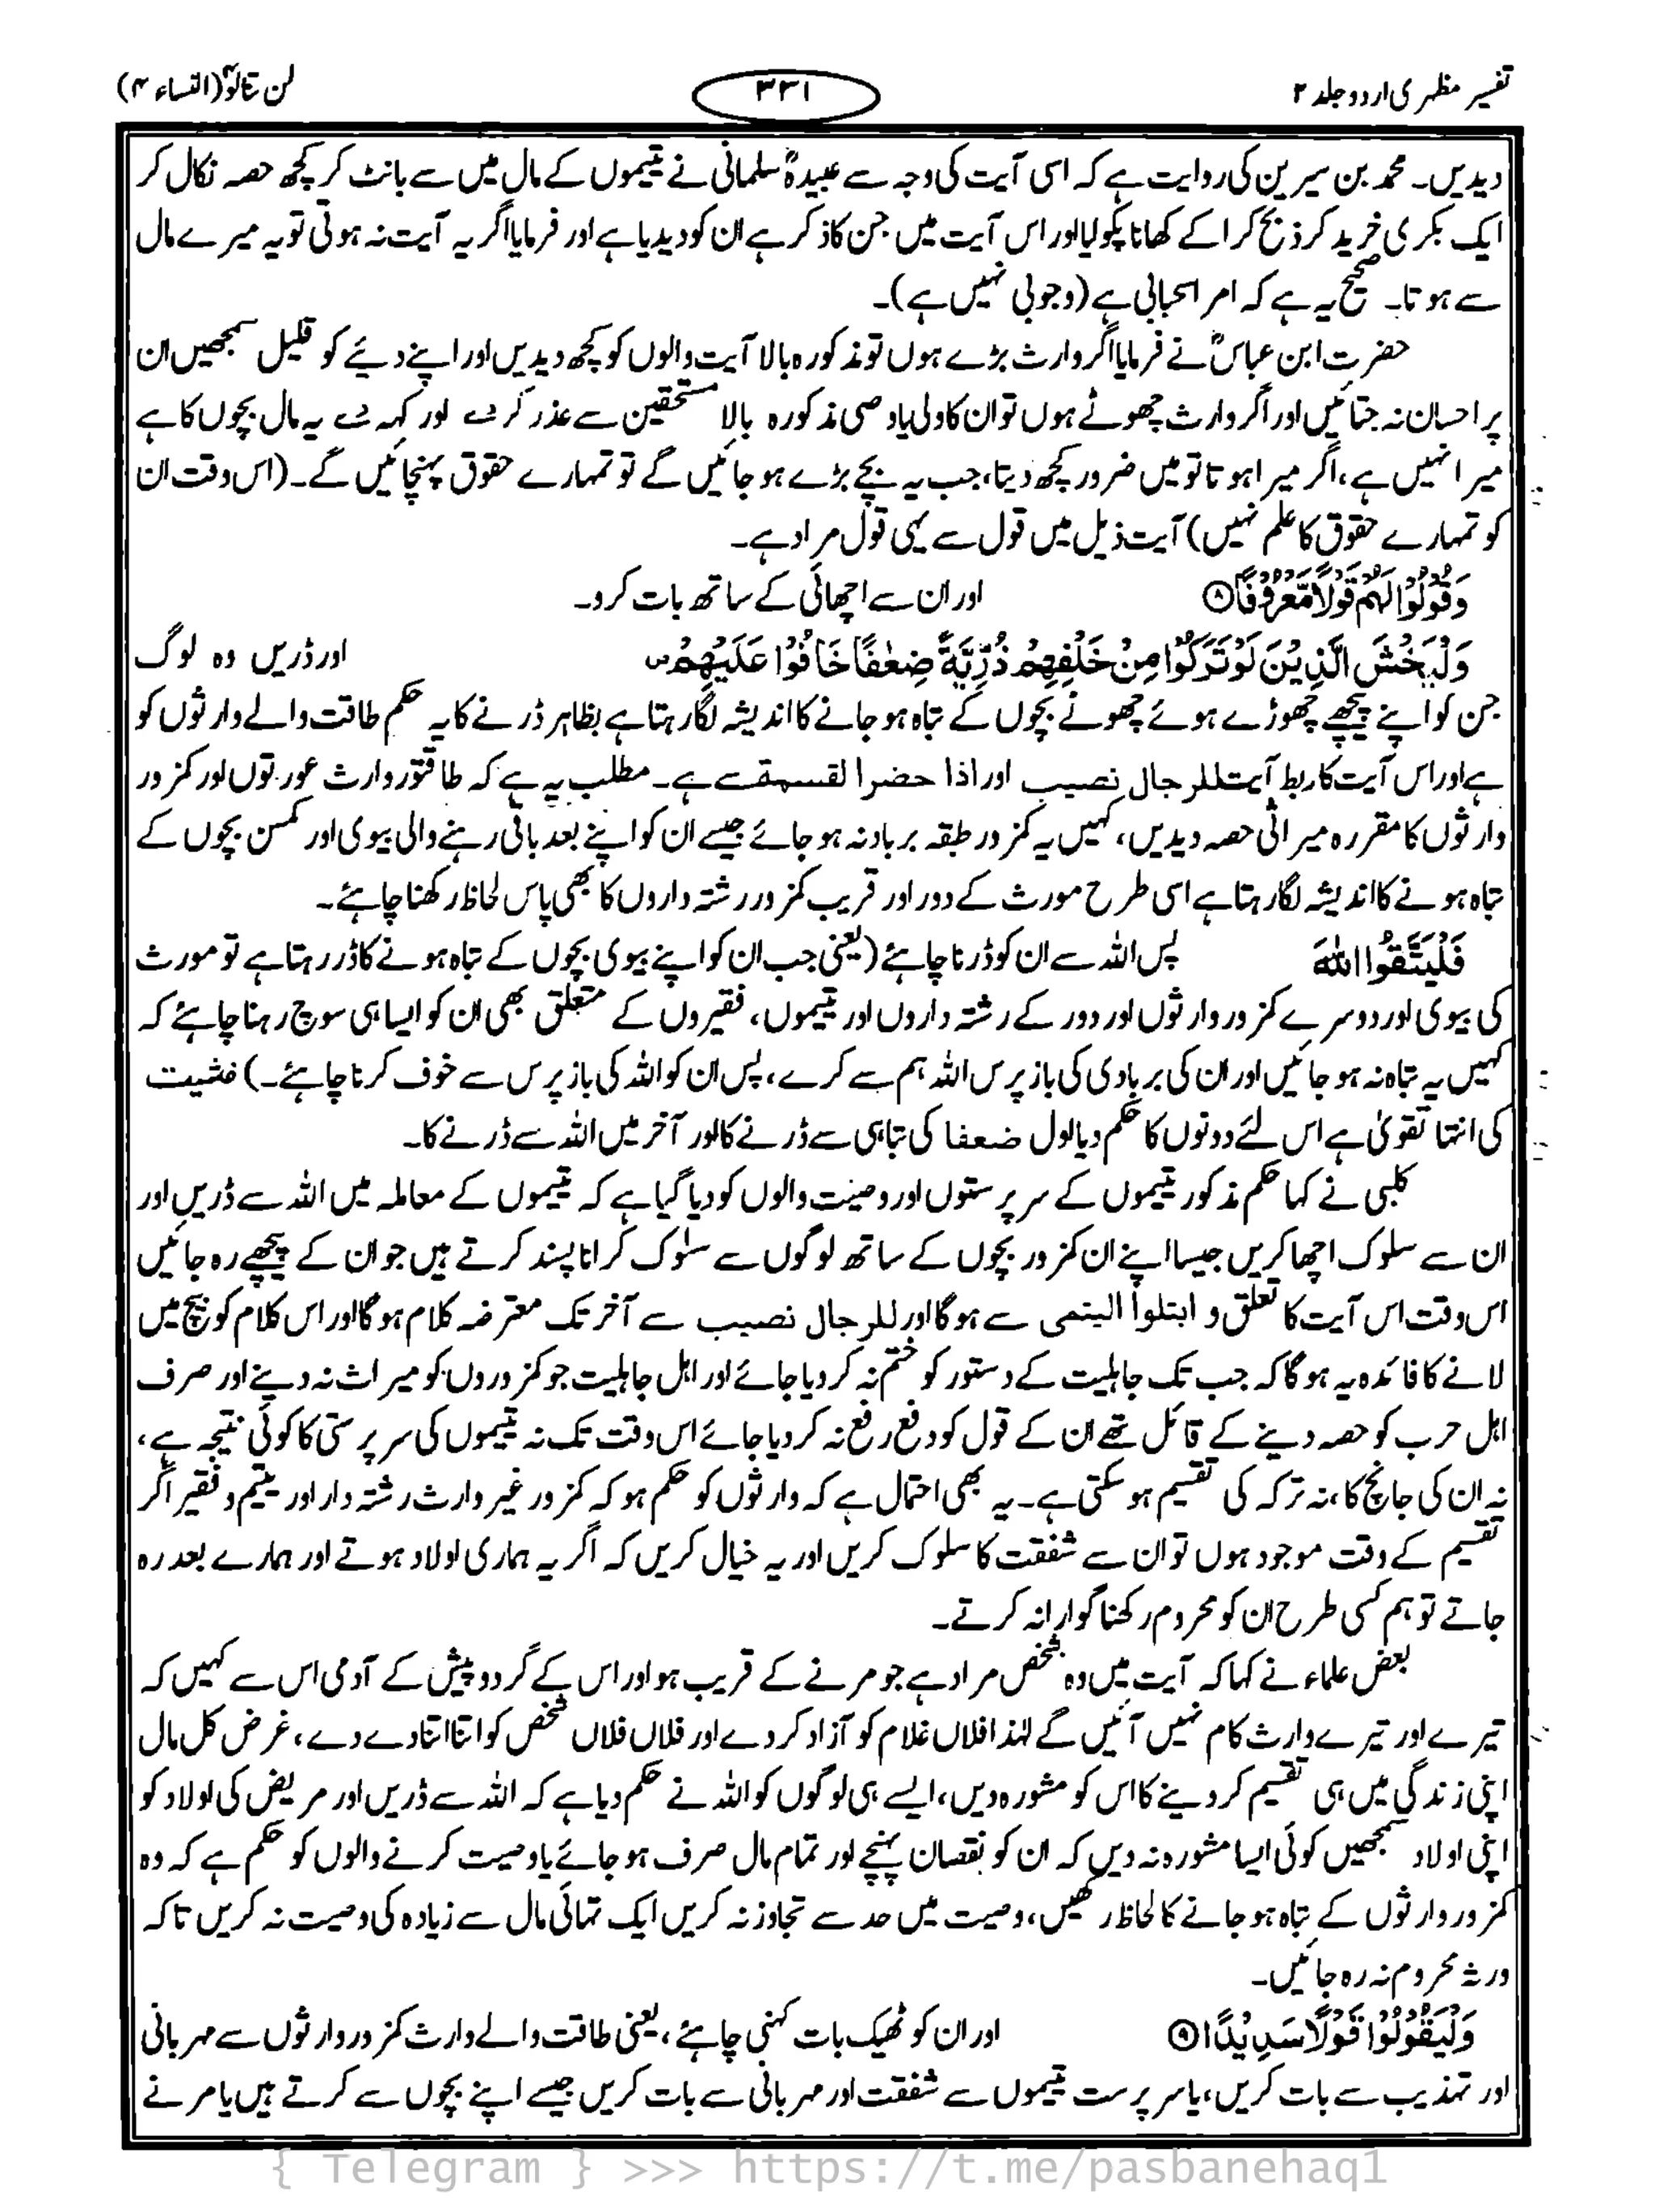 تفسیر مظہری اردو جلد ۲
۳۳۱
لن تنالو۴ (النساء ۴)
دیدیں۔ محمد بن سیرین کی روایت ہے کہ اسی آیت کی وجہ سے عبیدہؓ سلمانی نے یتیموں کے مال میں سے بانٹ کر کچھ حصہ نکال کر
ایک بکری خرید کر ذبح کرا کے کھانا پکوایا اور اس آیت میں جن کا ذکر ہے ان کو دیدیا ہے اور فرمایا اگر یہ آیت نہ ہوتی تو یہ میرے مال
سے ہوتا۔ صحیح یہ ہے کہ امر استحبابی ہے (وجوبی نہیں ہے)۔
حضرت ابن عباسؓ نے فرمایا اگر وارث بڑے ہوں تو مذکورہ بالا آیت والوں کو کچھ دیدیں اور اپنے دیئے کو قلیل سمجھیں ان
پر احسان نہ جتائیں اور اگر وارث چھوٹے ہوں تو ان کا ولی یا وصی مذکورہ بالا مستحقین سے عذر کر دے اور کہہ دے یہ مال بچوں کا ہے
میرا نہیں ہے، اگر میرا ہوتا تو میں ضرور کچھ دیتا، جب یہ بچے بڑے ہو جائیں گے تو تمہارے حقوق پہنچائیں گے۔ (اس وقت ان
کو تمہارے حقوق کا علم نہیں) آیت ذیل میں قول سے یہی قول مراد ہے۔
وَقُولُوْا لَهُمْ قَوْلًا مَّعْرُوْفًا ۝۸ اور ان سے اچھائی کے ساتھ بات کرو۔
وَلْيَخْشَ الَّذِيْنَ لَوْ تَرَكُوْا مِنْ خَلْفِهِمْ ذُرِّيَّةً ضِعٰفًا خَافُوْا عَلَيْهِمْ ۪ اور ڈریں وہ لوگ
جن کو اپنے پیچھے چھوڑے ہوئے چھوٹے بچوں کے تباہ ہو جانے کا اندیشہ لگا رہتا ہے بظاہر ڈرنے کا یہ حکم طاقت والے وارثوں کو
ہے اور اس آیت کا ربط آیت للرجال نصیب اور اذا حضرا لقسمة سے ہے۔ مطلب یہ ہے کہ طاقتور وارث عورتوں اور کمزور
وارثوں کا مقررہ میراثی حصہ دیدیں، کہیں یہ کمزور طبقہ برباد نہ ہو جائے جیسے ان کو اپنے بعد باقی رہنے والی بیوی اور کمسن بچوں کے
تباہ ہونے کا اندیشہ لگا رہتا ہے اسی طرح مورث کے دور اور قریب کمزور رشتہ داروں کا بھی پاس لحاظ رکھنا چاہئے۔
فَلْيَتَّقُوا اللّٰهَ پس اللہ سے ان کو ڈرنا چاہئے (یعنی جب ان کو اپنے بیوی بچوں کے تباہ ہونے کا ڈر رہتا ہے تو مورث
کی بیوی اور دوسرے کمزور وارثوں اور دور کے رشتہ داروں اور یتیموں، فقیروں کے متعلق بھی ان کو ایسا ہی سوچ رہنا چاہئے کہ
کہیں یہ تباہ نہ ہو جائیں اور ان کی بربادی کی باز پرس اللہ ہم سے کرے، پس ان کو اللہ کی باز پرس سے خوف کرنا چاہئے۔) خشیت
کی انتہا تقویٰ ہے اس لئے دونوں کا حکم دیا اول ضعفا کی تباہی سے ڈرنے کا اور آخر میں اللہ سے ڈرنے کا۔
کلبی نے کہا حکم مذکور یتیموں کے سرپرستوں اور وصیت والوں کو دیا گیا ہے کہ یتیموں کے معاملہ میں اللہ سے ڈریں اور
ان سے سلوک اچھا کریں جیسا اپنے ان کمزور بچوں کے ساتھ لوگوں سے سلوک کرانا پسند کرتے ہیں جو ان کے پیچھے رہ جائیں
اس وقت اس آیت کا تعلق و ابتلوا الیتمی سے ہوگا اور للرجال نصیب سے آخر تک معترضہ کلام ہوگا اور اس کلام کو بیچ میں
لانے کا فائدہ یہ ہوگا کہ جب تک جاہلیت کے دستور کو ختم نہ کر دیا جائے اور اہل جاہلیت جو کمزوروں کو میراث نہ دینے اور صرف
اہل حرب کو حصہ دینے کے قائل تھے ان کے قول کو دفع رفع نہ کر دیا جائے اس وقت تک نہ یتیموں کی سرپرستی کا کوئی نتیجہ ہے،
نہ ان کی جانچ کا، نہ ترکہ کی تقسیم ہو سکتی ہے۔ یہ بھی احتمال ہے کہ وارثوں کو حکم ہو کہ کمزور غیر وارث رشتہ دار اور یتیم و فقیر اگر
تقسیم کے وقت موجود ہوں تو ان سے شفقت کا سلوک کریں اور یہ خیال کریں کہ اگر یہ ہماری اولاد ہوتے اور ہمارے بعد رہ
جاتے تو ہم کسی طرح ان کو محروم رکھنا گوارا نہ کرتے۔
بعض علماء نے کہا کہ آیت میں وہ شخص مراد ہے جو مرنے کے قریب ہو اور اس کے گرد و پیش کے آدمی اس سے کہیں کہ
تیرے اور تیرے وارث کام نہیں آئیں گے لہٰذا فلاں غلام کو آزاد کر دے اور فلاں فلاں شخص کو اتنا اتنا دے دے، غرض کل مال
اپنی زندگی میں ہی تقسیم کر دینے کا اس کو مشورہ دیں، ایسے ہی لوگوں کو اللہ نے حکم دیا ہے کہ اللہ سے ڈریں اور مریض کی اولاد کو
اپنی اولاد سمجھیں کوئی ایسا مشورہ نہ دیں کہ ان کو نقصان پہنچے اور تمام مال صرف ہو جائے یا وصیت کرنے والوں کو حکم ہے کہ وہ
کمزور وارثوں کے تباہ ہو جانے کا لحاظ رکھیں، وصیت میں حد سے تجاوز نہ کریں ایک تہائی مال سے زیادہ کی وصیت نہ کریں تا کہ
ورثہ محروم نہ رہ جائیں۔
وَلْيَقُوْلُوْا قَوْلًا سَدِيْدًا ۝۹ اور ان کو ٹھیک بات کہنی چاہئے، یعنی طاقت والے وارث کمزور وارثوں سے مہربانی
اور تہذیب سے بات کریں، یا سرپرست یتیموں سے شفقت اور مہربانی سے بات کریں جیسے اپنے بچوں سے کرتے ہیں یا مرنے
{ Telegram } >>> https://t.me/pasbanehaq1